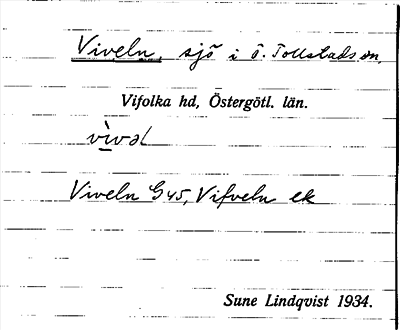 Viveln, sjö i Ö. Tollstads sn,
Vifolka hd, Östergötl. län.
vìvəl
Viveln G45, Vifveln ek
Sune Lindqvist 1934.